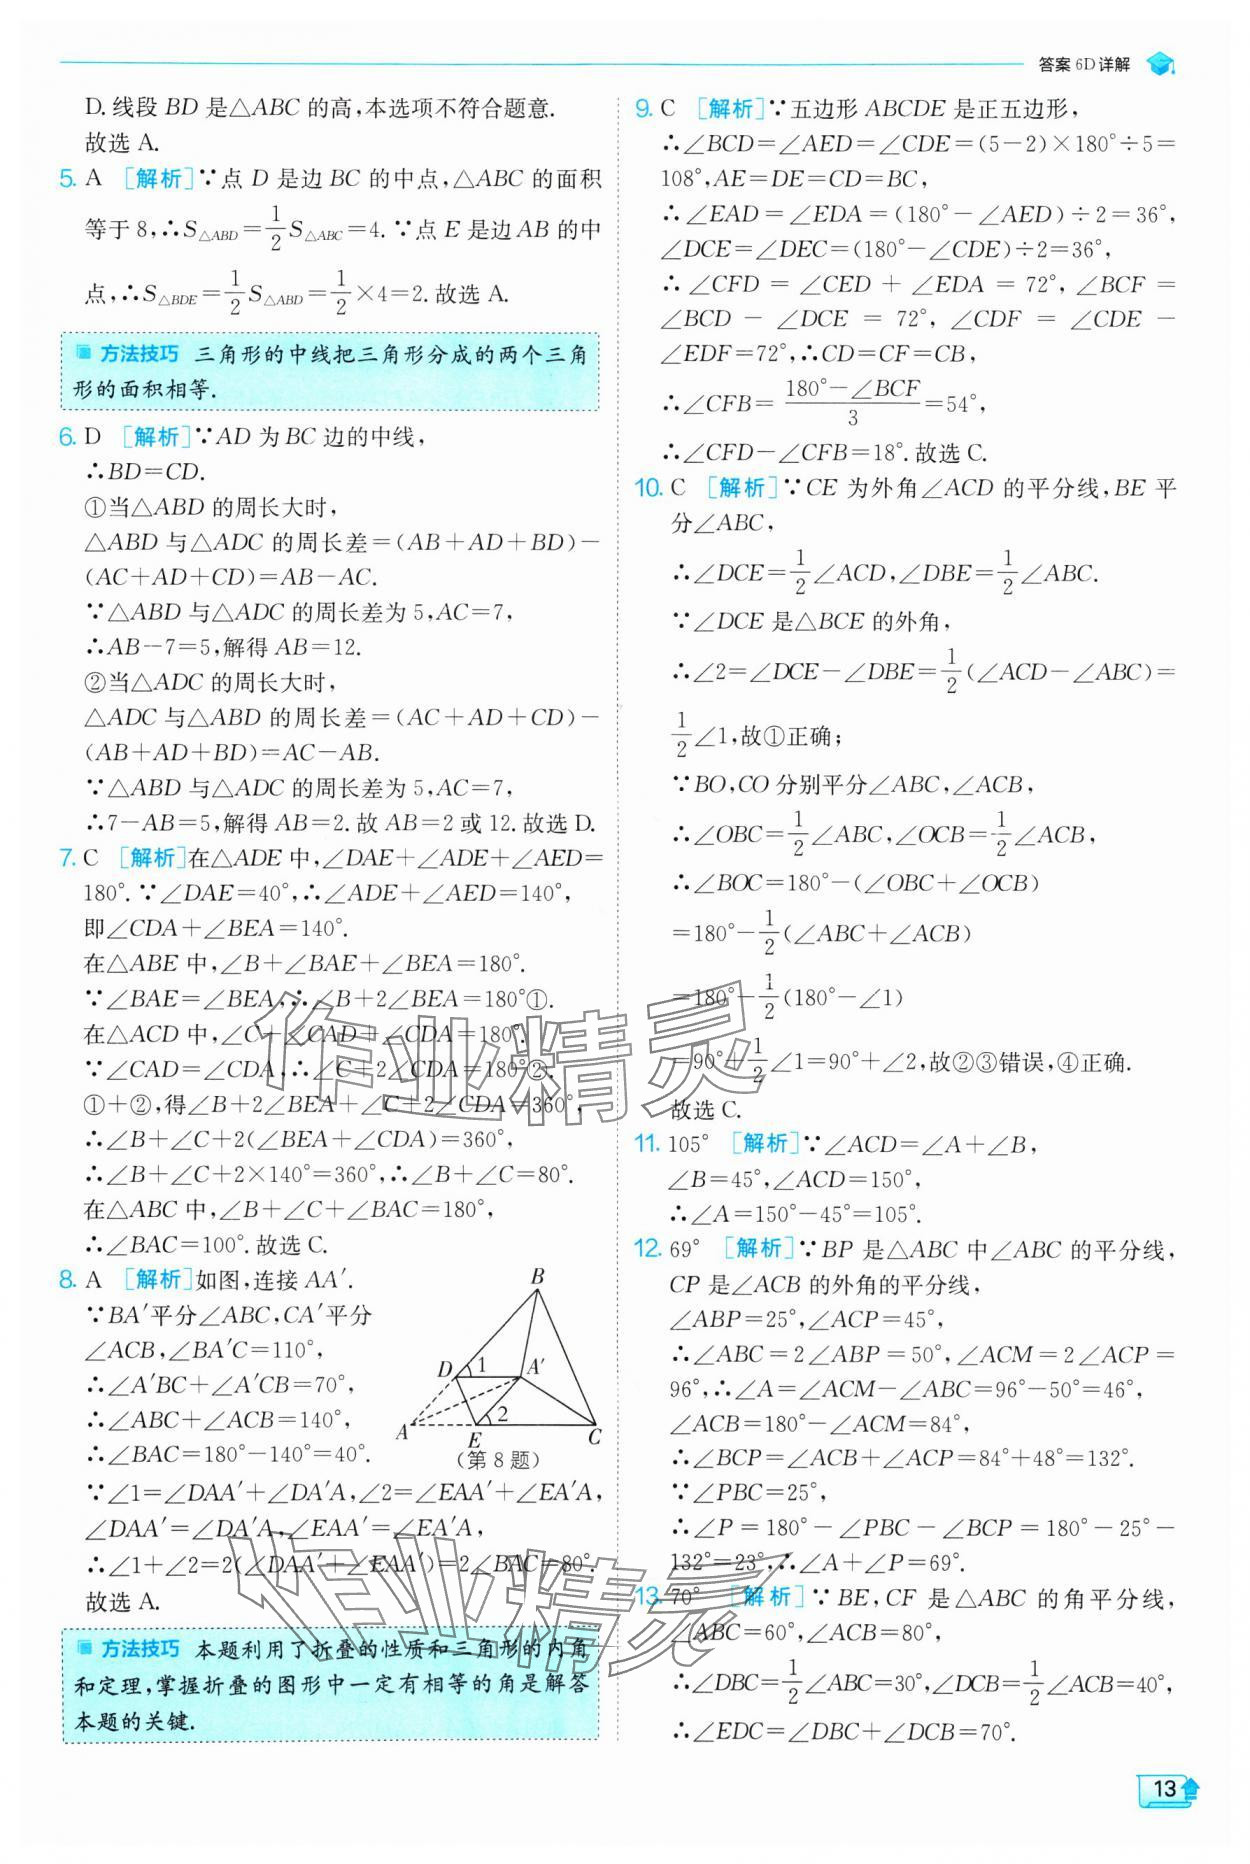 答案 6D详解
D.线段 BD 是△ABC 的高,本选项不符合题意.
故选 A.
5. A [解析]∵点 D 是边 BC 的中点,△ABC 的面积
等于 8,∴S△ABD=1/2S△ABC=4.∵点 E 是边 AB 的中
点,∴S△BDE=1/2S△ABD=1/2×4=2.故选 A.
方法技巧 三角形的中线把三角形分成的两个三角
形的面积相等.
6. D [解析]∵AD 为 BC 边的中线,
∴BD=CD.
①当△ABD 的周长大时,
△ABD 与△ADC 的周长差=(AB+AD+BD)-
(AC+AD+CD)=AB-AC.
∵△ABD 与△ADC 的周长差为 5,AC=7,
∴AB-7=5,解得 AB=12.
②当△ADC 的周长大时,
△ADC 与△ABD 的周长差=(AC+AD+CD)-
(AB+AD+BD)=AC-AB.
∵△ABD 与△ADC 的周长差为 5,AC=7,
∴7-AB=5,解得 AB=2.故 AB=2 或 12.故选 D.
7. C [解析]在△ADE 中,∠DAE+∠ADE+∠AED=
180°.∵∠DAE=40°,∴∠ADE+∠AED=140°,
即∠CDA+∠BEA=140°.
在△ABE 中,∠B+∠BAE+∠BEA=180°.
∵∠BAE=∠BEA,∴∠B+2∠BEA=180°①.
在△ACD 中,∠C+∠CAD+∠CDA=180°.
∵∠CAD=∠CDA,∴∠C+2∠CDA=180°②.
①+②,得∠B+2∠BEA+∠C+2∠CDA=360°,
∴∠B+∠C+2(∠BEA+∠CDA)=360°,
∴∠B+∠C+2×140°=360°,∴∠B+∠C=80°.
在△ABC 中,∠B+∠C+∠BAC=180°,
∴∠BAC=100°.故选 C.
8. A [解析]如图,连接 AA′.
∵BA′平分∠ABC,CA′平分
∠ACB,∠BA′C=110°,
∴∠A′BC+∠A′CB=70°,
∴∠ABC+∠ACB=140°,
∴∠BAC=180°-140°=40°.
B
D 1 A′
A E 2 C
(第 8 题)
∵∠1=∠DAA′+∠DA′A,∠2=∠EAA′+∠EA′A,
∠DAA′=∠DA′A,∠EAA′=∠EA′A,
∴∠1+∠2=2(∠DAA′+∠EAA′)=2∠BAC=80°.
故选 A.
方法技巧 本题利用了折叠的性质和三角形的内角
和定理,掌握折叠的图形中一定有相等的角是解答
本题的关键.
9. C [解析]∵五边形 ABCDE 是正五边形,
∴∠BCD=∠AED=∠CDE=(5-2)×180°÷5=
108°,AE=DE=CD=BC,
∴∠EAD=∠EDA=(180°-∠AED)÷2=36°,
∠DCE=∠DEC=(180°-∠CDE)÷2=36°,
∴∠CFD=∠CED+∠EDA=72°,∠BCF=
∠BCD-∠DCE=72°,∠CDF=∠CDE-
∠EDF=72°,∴CD=CF=CB,
∴∠CFB=(180°-∠BCF)/3=54°,
∴∠CFD-∠CFB=18°.故选 C.
10. C [解析]∵CE 为外角∠ACD 的平分线,BE 平
分∠ABC,
∴∠DCE=1/2∠ACD,∠DBE=1/2∠ABC.
∵∠DCE 是△BCE 的外角,
∴∠2=∠DCE-∠DBE=1/2(∠ACD-∠ABC)=
1/2∠1,故①正确;
∵BO,CO 分别平分∠ABC,∠ACB,
∴∠OBC=1/2∠ABC,∠OCB=1/2∠ACB,
∴∠BOC=180°-(∠OBC+∠OCB)
=180°-1/2(∠ABC+∠ACB)
=180°-1/2(180°-∠1)
=90°+1/2∠1=90°+∠2,故②③错误,④正确.
故选 C.
11. 105° [解析]∵∠ACD=∠A+∠B,
∠B=45°,∠ACD=150°,
∴∠A=150°-45°=105°.
12. 69° [解析]∵BP 是△ABC 中∠ABC 的平分线,
CP 是∠ACB 的外角的平分线,
∠ABP=25°,∠ACP=45°,
∴∠ABC=2∠ABP=50°,∠ACM=2∠ACP=
96°,∴∠A=∠ACM-∠ABC=96°-50°=46°,
∠ACB=180°-∠ACM=84°,
∴∠BCP=∠ACB+∠ACP=84°+48°=132°.
∵∠PBC=25°,
∴∠P=180°-∠PBC-∠BCP=180°-25°-
132°=23°,∴∠A+∠P=69°.
13. 70° [解析]∵BE,CF 是△ABC 的角平分线,
∠ABC=60°,∠ACB=80°,
∴∠DBC=1/2∠ABC=30°,∠DCB=1/2∠ACB=40°,
∴∠EDC=∠DBC+∠DCB=70°.
作业精灵
作业精灵
13